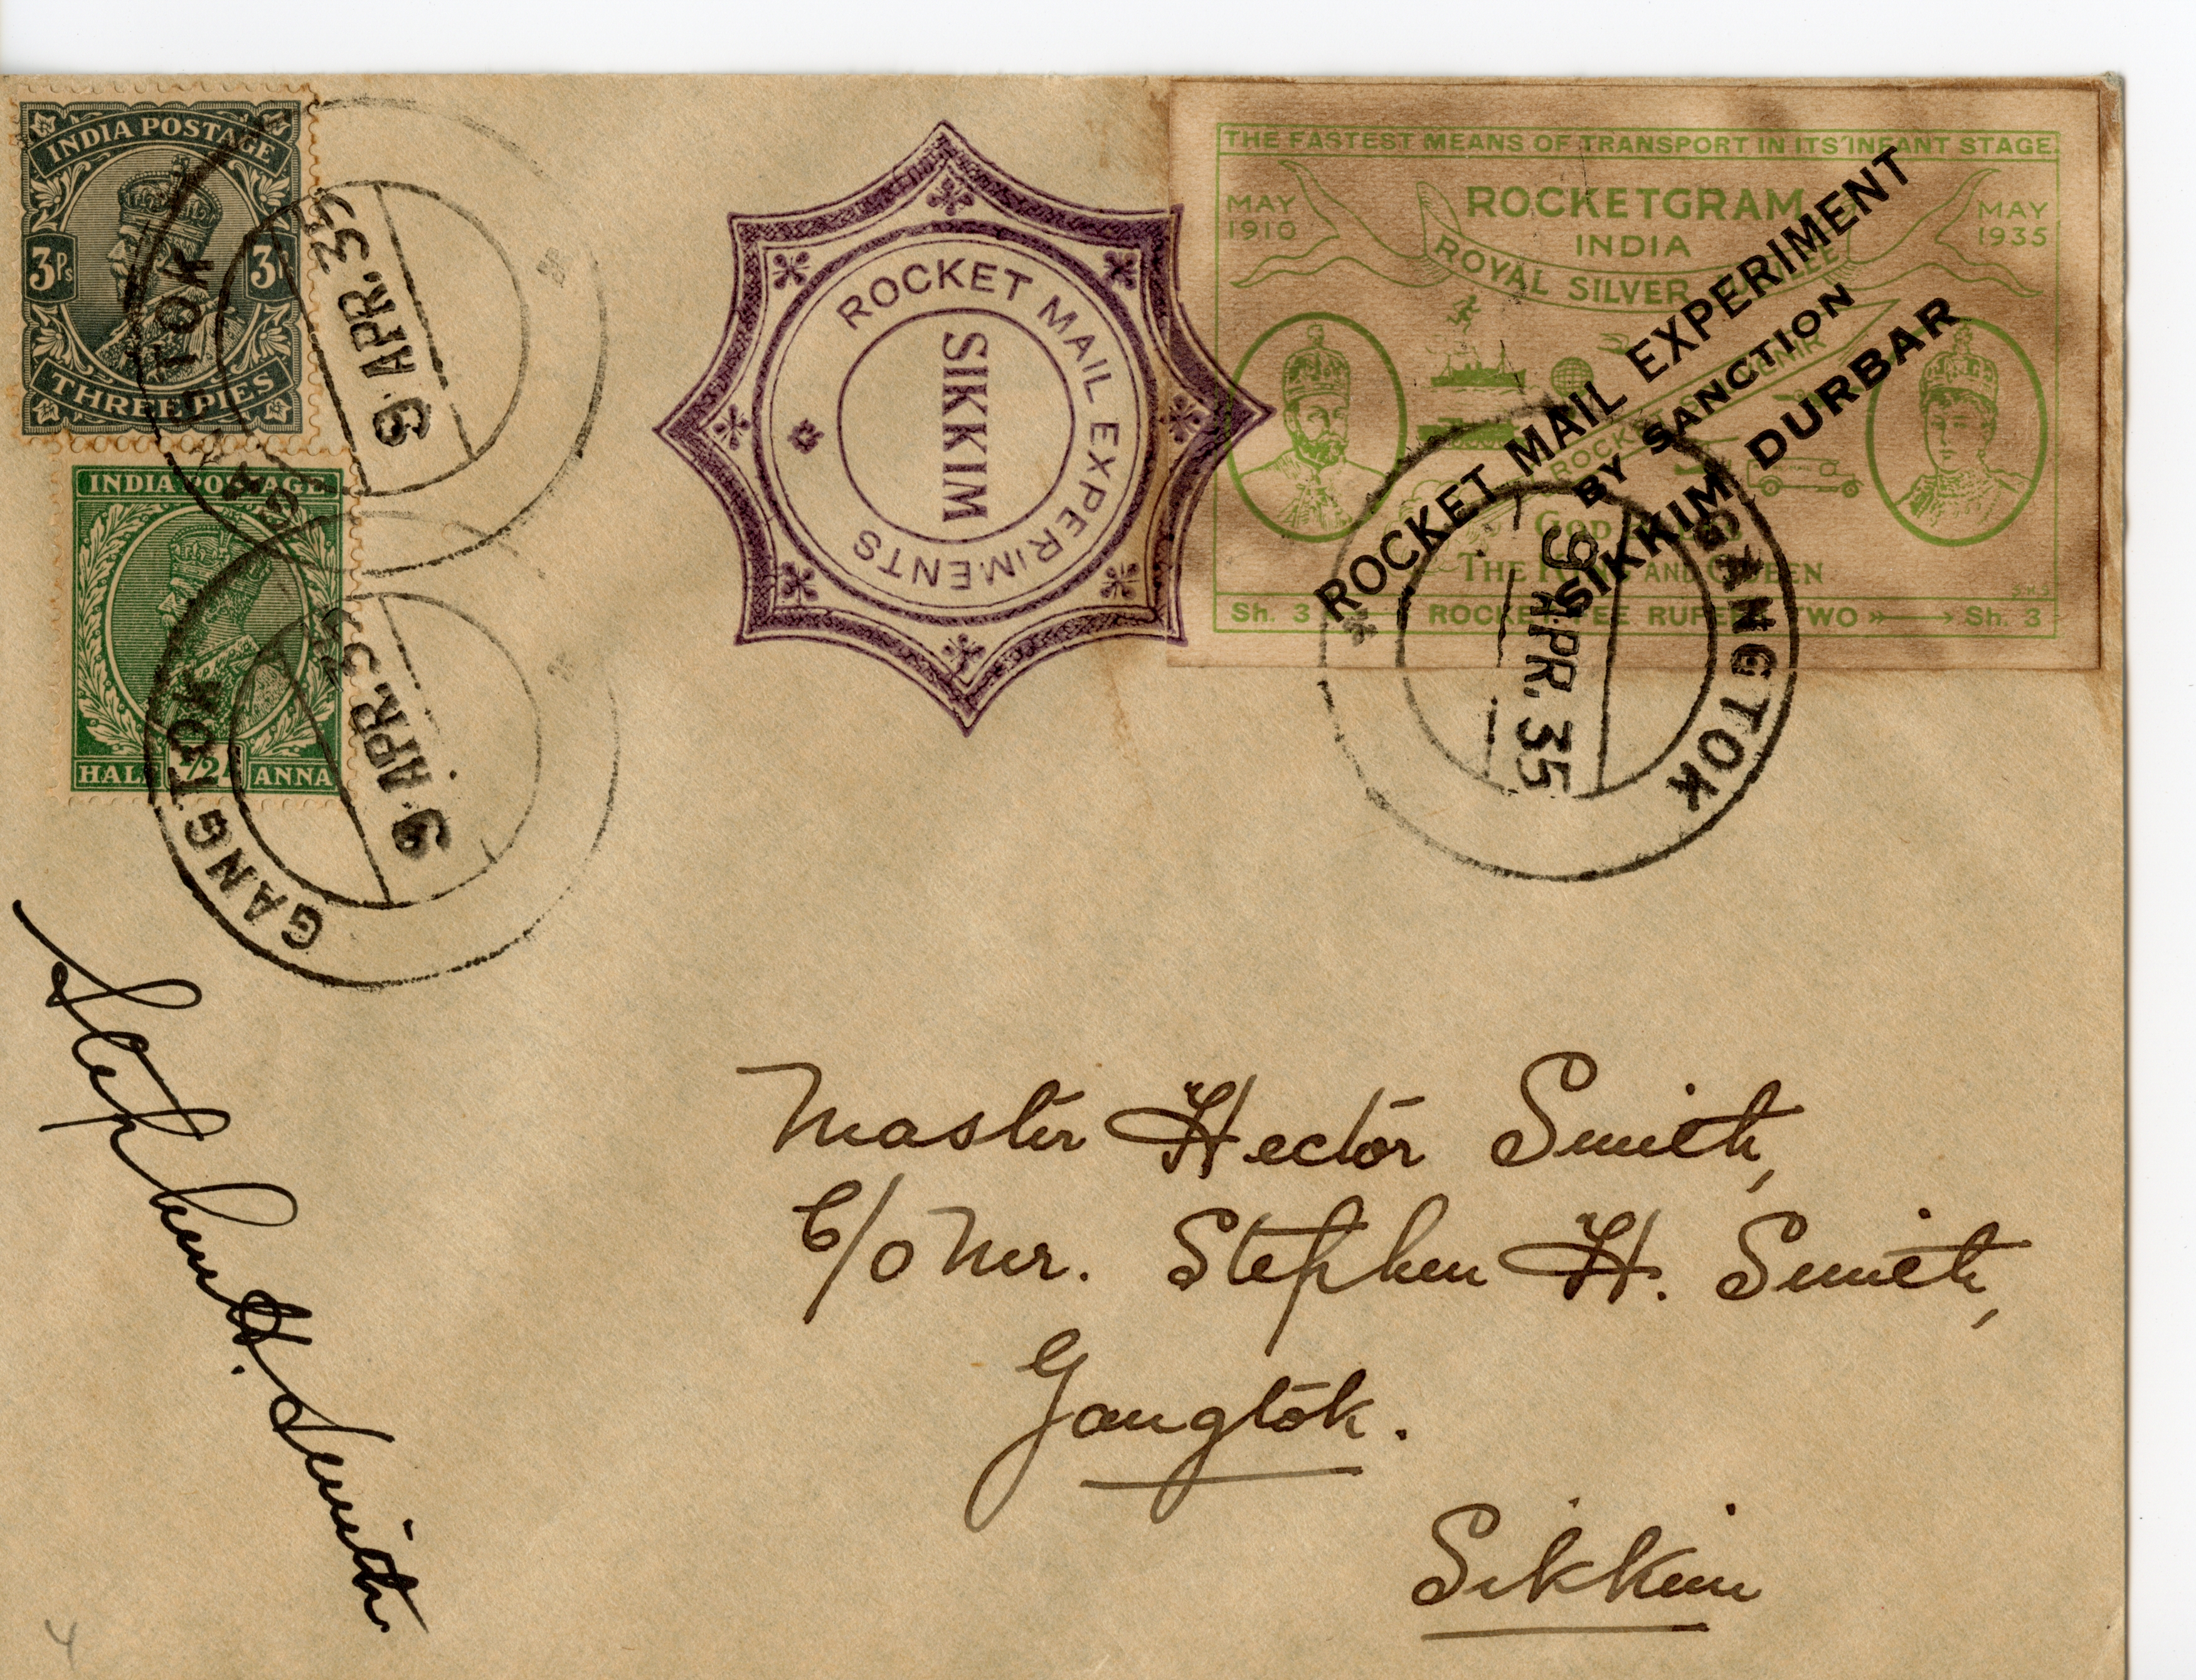 INDIA POSTAGE
3Ps
3
THREE PIES
GANGTOK
9 APR. 35
INDIA POSTAGE
HALF 1/2 ANNA
GANGTOK
9 APR. 35
ROCKET MAIL EXPERIMENTS
SIKKIM
THE FASTEST MEANS OF TRANSPORT IN ITS INFANT STAGE.
MAY 1910
ROCKETGRAM
INDIA
MAY 1935
ROYAL SILVER JUBILEE
ROCKET MAIL EXPERIMENT
BY SANCTION
SIKKIM DURBAR
GOD
THE KING AND QUEEN
Sh. 3 ROCKET FEE RUPEES TWO Sh. 3
GANGTOK
9 APR. 35
Stephen H. Smith
Master Hector Smith,
C/o Mr. Stephen H. Smith,
Gangtok.
Sikkim
4